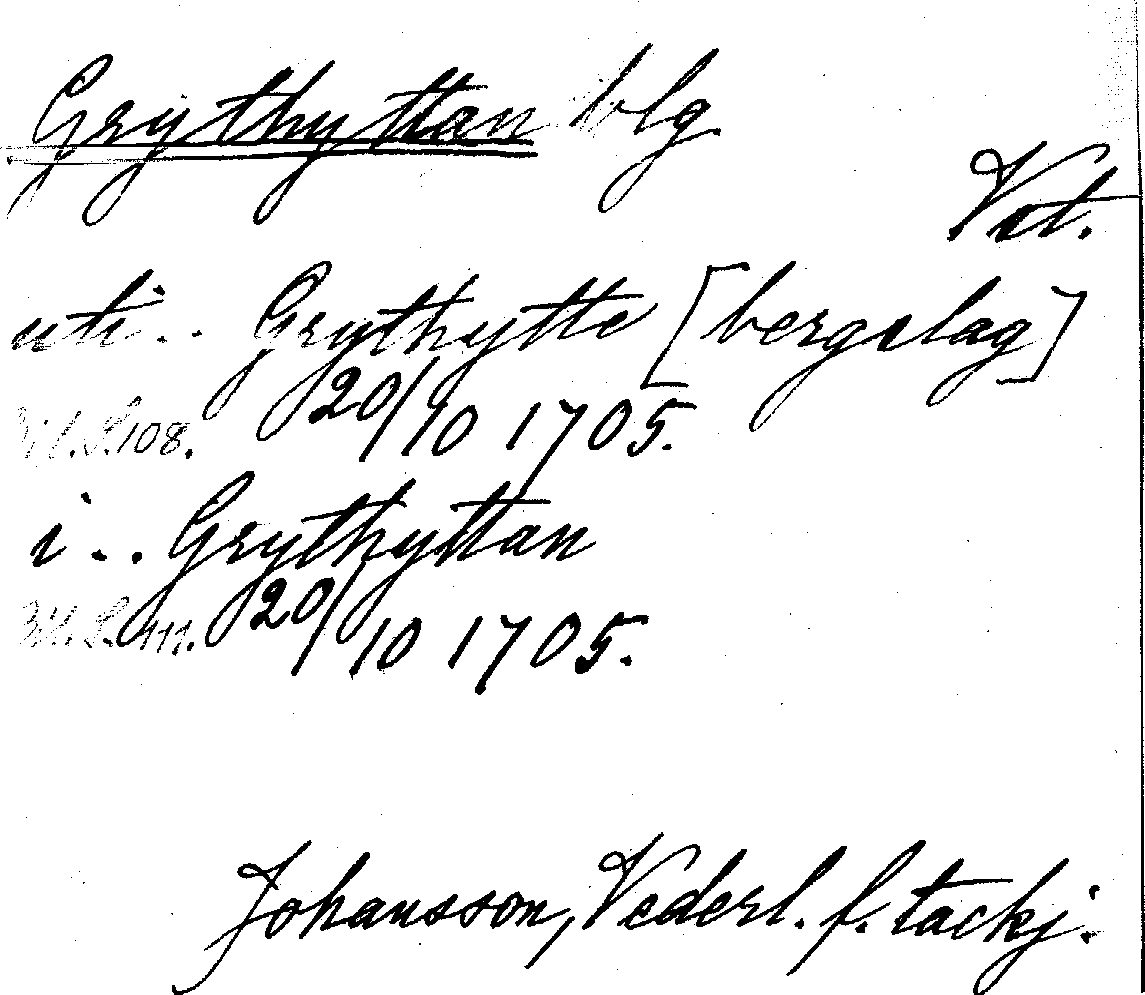 Grythyttan blg.
Vst.
uti.. Grythytte [bergslag]
Bil. S. 108. 20/10 1705.
i.. Grythyttan
Bil. S. 111. 20/10 1705.
Johansson, Vederl. f. tackj.